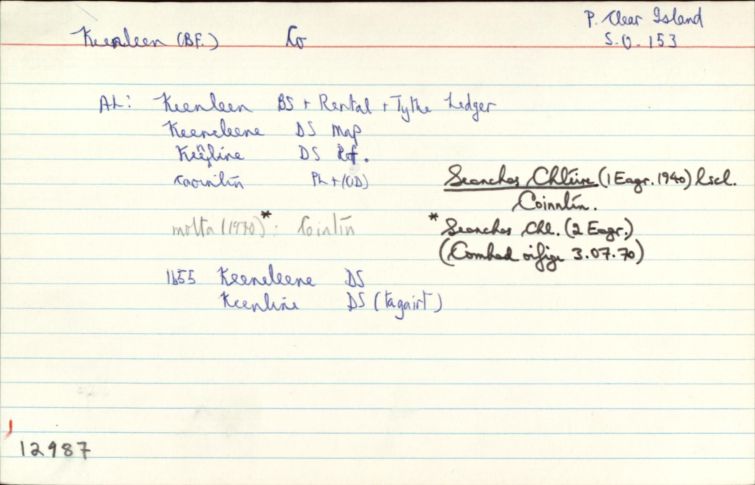 P. Clear Island
Keenleen (BF.) Co S.O. 153
AL: Keenleen BS + Rental + Tythe Ledger
Keeneleene DS Map
Keēline DS Ref.
caoinlín Ph + (OD)
Seanchas Chléire (1 Eagr. 1940) lscl.
Coinnlín.
molta (1970)*: Coinlín
* Seanchas Chl. (2 Eagr.)
(Comhad oifige 3.07.70)
1655 Keeneleene DS
Keenline DS (tagairt)
12987